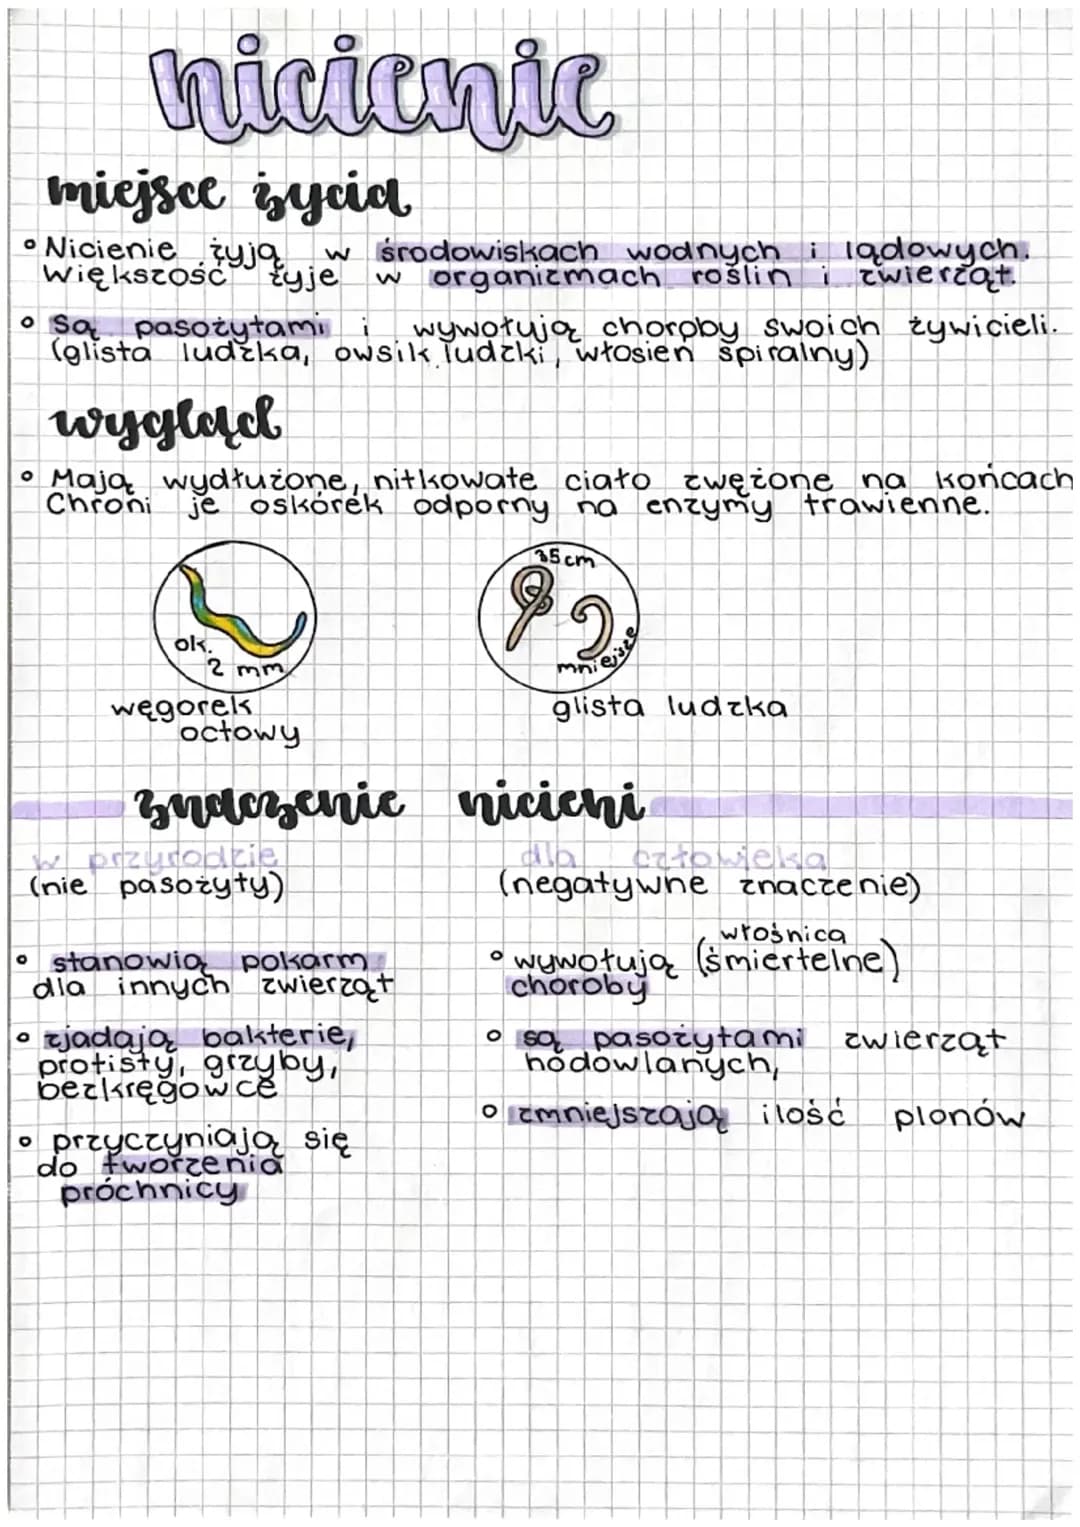 nicienie
miejsce życia
• Nicienie żyją w środowiskach wodnych i lądowych.
Większość żyje w organizmach roślin i zwierząt.
• Są pasożytami i wywołują choroby swoich żywicieli.
(glista ludzka, owsik ludzki, włosień spiralny)
wygląd
• Mają wydłużone, nitkowate ciało zwężone na końcach
Chroni je oskórek odporny na enzymy trawienne.
ok.
2 mm
węgorek
octowy
35 cm
mniejsze
glista ludzka
znaczenie nicieni
w przyrodzie
(nie pasożyty)
• stanowią pokarm
dla innych zwierząt
• zjadają bakterie,
protisty, grzyby,
bezkręgowce
• przyczyniają się
do tworzenia
próchnicy
dla człowieka
(negatywne znaczenie)
włośnica
• wywołują (śmiertelne)
choroby
• są pasożytami zwierząt
hodowlanych,
• zmniejszają ilość plonów